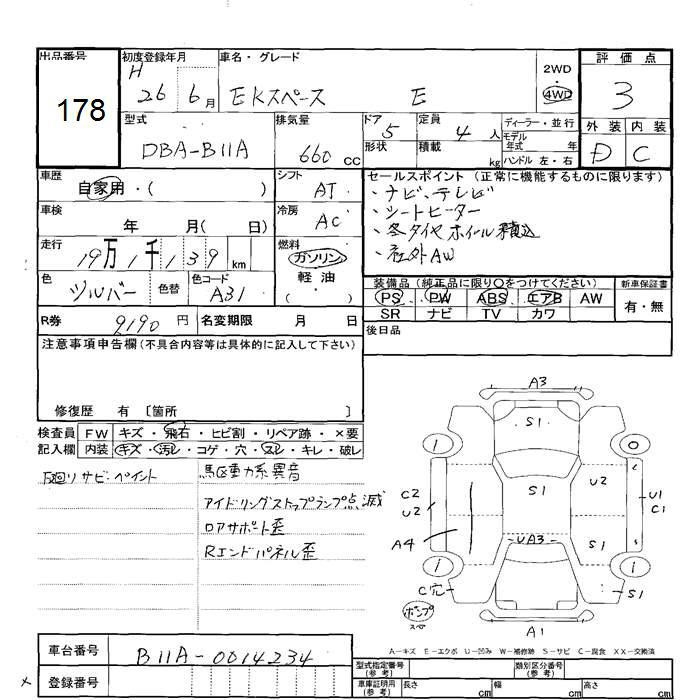 出品番号 初度登録年月 車名・グレード 評価点
178
H 26 6月 EKスペース E
2WD
4WD
3
型式 排気量 ドア 定員 ディーラー・並行 外装 内装
DBA-B11A 660 CC 5 4 人 モデル年式 年
形状 積載 kg ハンドル 左・右
D C
車歴 自家用・( ) シフト AT
セールスポイント (正常に機能するものに限ります)
・ナビ、テレビ
・シートヒーター
・冬タイヤホイール積込
・社外AW
車検 年 月( 日) 冷房 AC
走行 19万1千139 km 燃料 ガソリン
軽油
( )
色 シルバー 色替 色コード A31
装備品 (純正品に限り〇をつけてください) 新車保証書
PS PW ABS エアB AW 有・無
SR ナビ TV カワ
R券 9190 円 名変期限 月 日
後日品
注意事項申告欄(不具合内容等は具体的に記入して下さい)
修復歴 有 〔箇所 〕
検査員 FW キズ・飛石・ヒビ割・リペア跡・×要
記入欄 内装 キズ・汚レ・コゲ・穴・スレ・キレ・破レ
下廻リサビ・ペイント
駆動力系異音
アイドリングストップランプ点滅
ロアサポート歪
Rエンドパネル歪
A3
S1
1 0
C2
U2
S1
U2
U1
C1
A4
UA3
S1
1 1
C穴
S1
ポンプ
スペ
A1
A-キズ E-エクボ U-凹み W-補修跡 S-サビ C-腐食 XX-交換済
車台番号 B11A-0014234
登録番号
型式指定番号(参考) 類別区分番号(参考)
車庫証明用(参考) 長さ cm 幅 cm 高さ cm
×